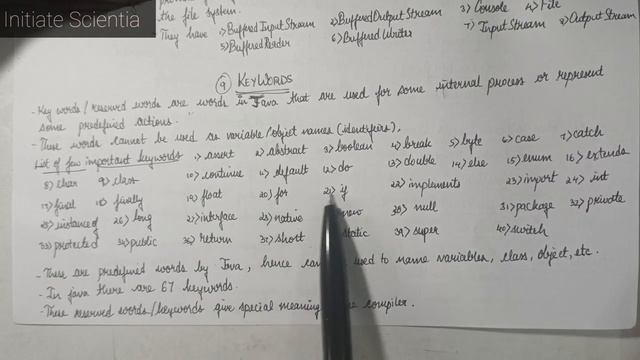 Initiate Scientia
the file system.
They have 1> Buffered Input Stream 2> Buffered Output Stream 3> Console 4> File
5> Buffered Reader 6> Buffered Writer 7> Input Stream 8> Output Stream
9 KEYWORDS
- Key words / reserved words are words in Java that are used for some internal process or represent
some predefined actions.
- These words cannot be used as variable/object names (identifiers).
List of few important keywords 1> assert 2> abstract 3> boolean 4> break 5> byte 6> case 7> catch
8> char 9> class 10> continue 11> default 12> do 13> double 14> else 15> enum 16> extends
17> final 18> finally 19> float 20> for 21> if 22> implements 23> import 24> int
25> instance of 26> long 27> interface 28> native new 30> null 31> package 32> private
33> protected 34> public 36> return 37> short static 39> super 40> switch
- These are predefined words by Java, hence can used to name variables, class, object, etc.
- In java there are 67 keywords.
- These reserved words/keywords give special meaning compiler.